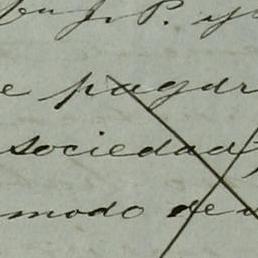 P. y
e pagar
sociedad
modo de